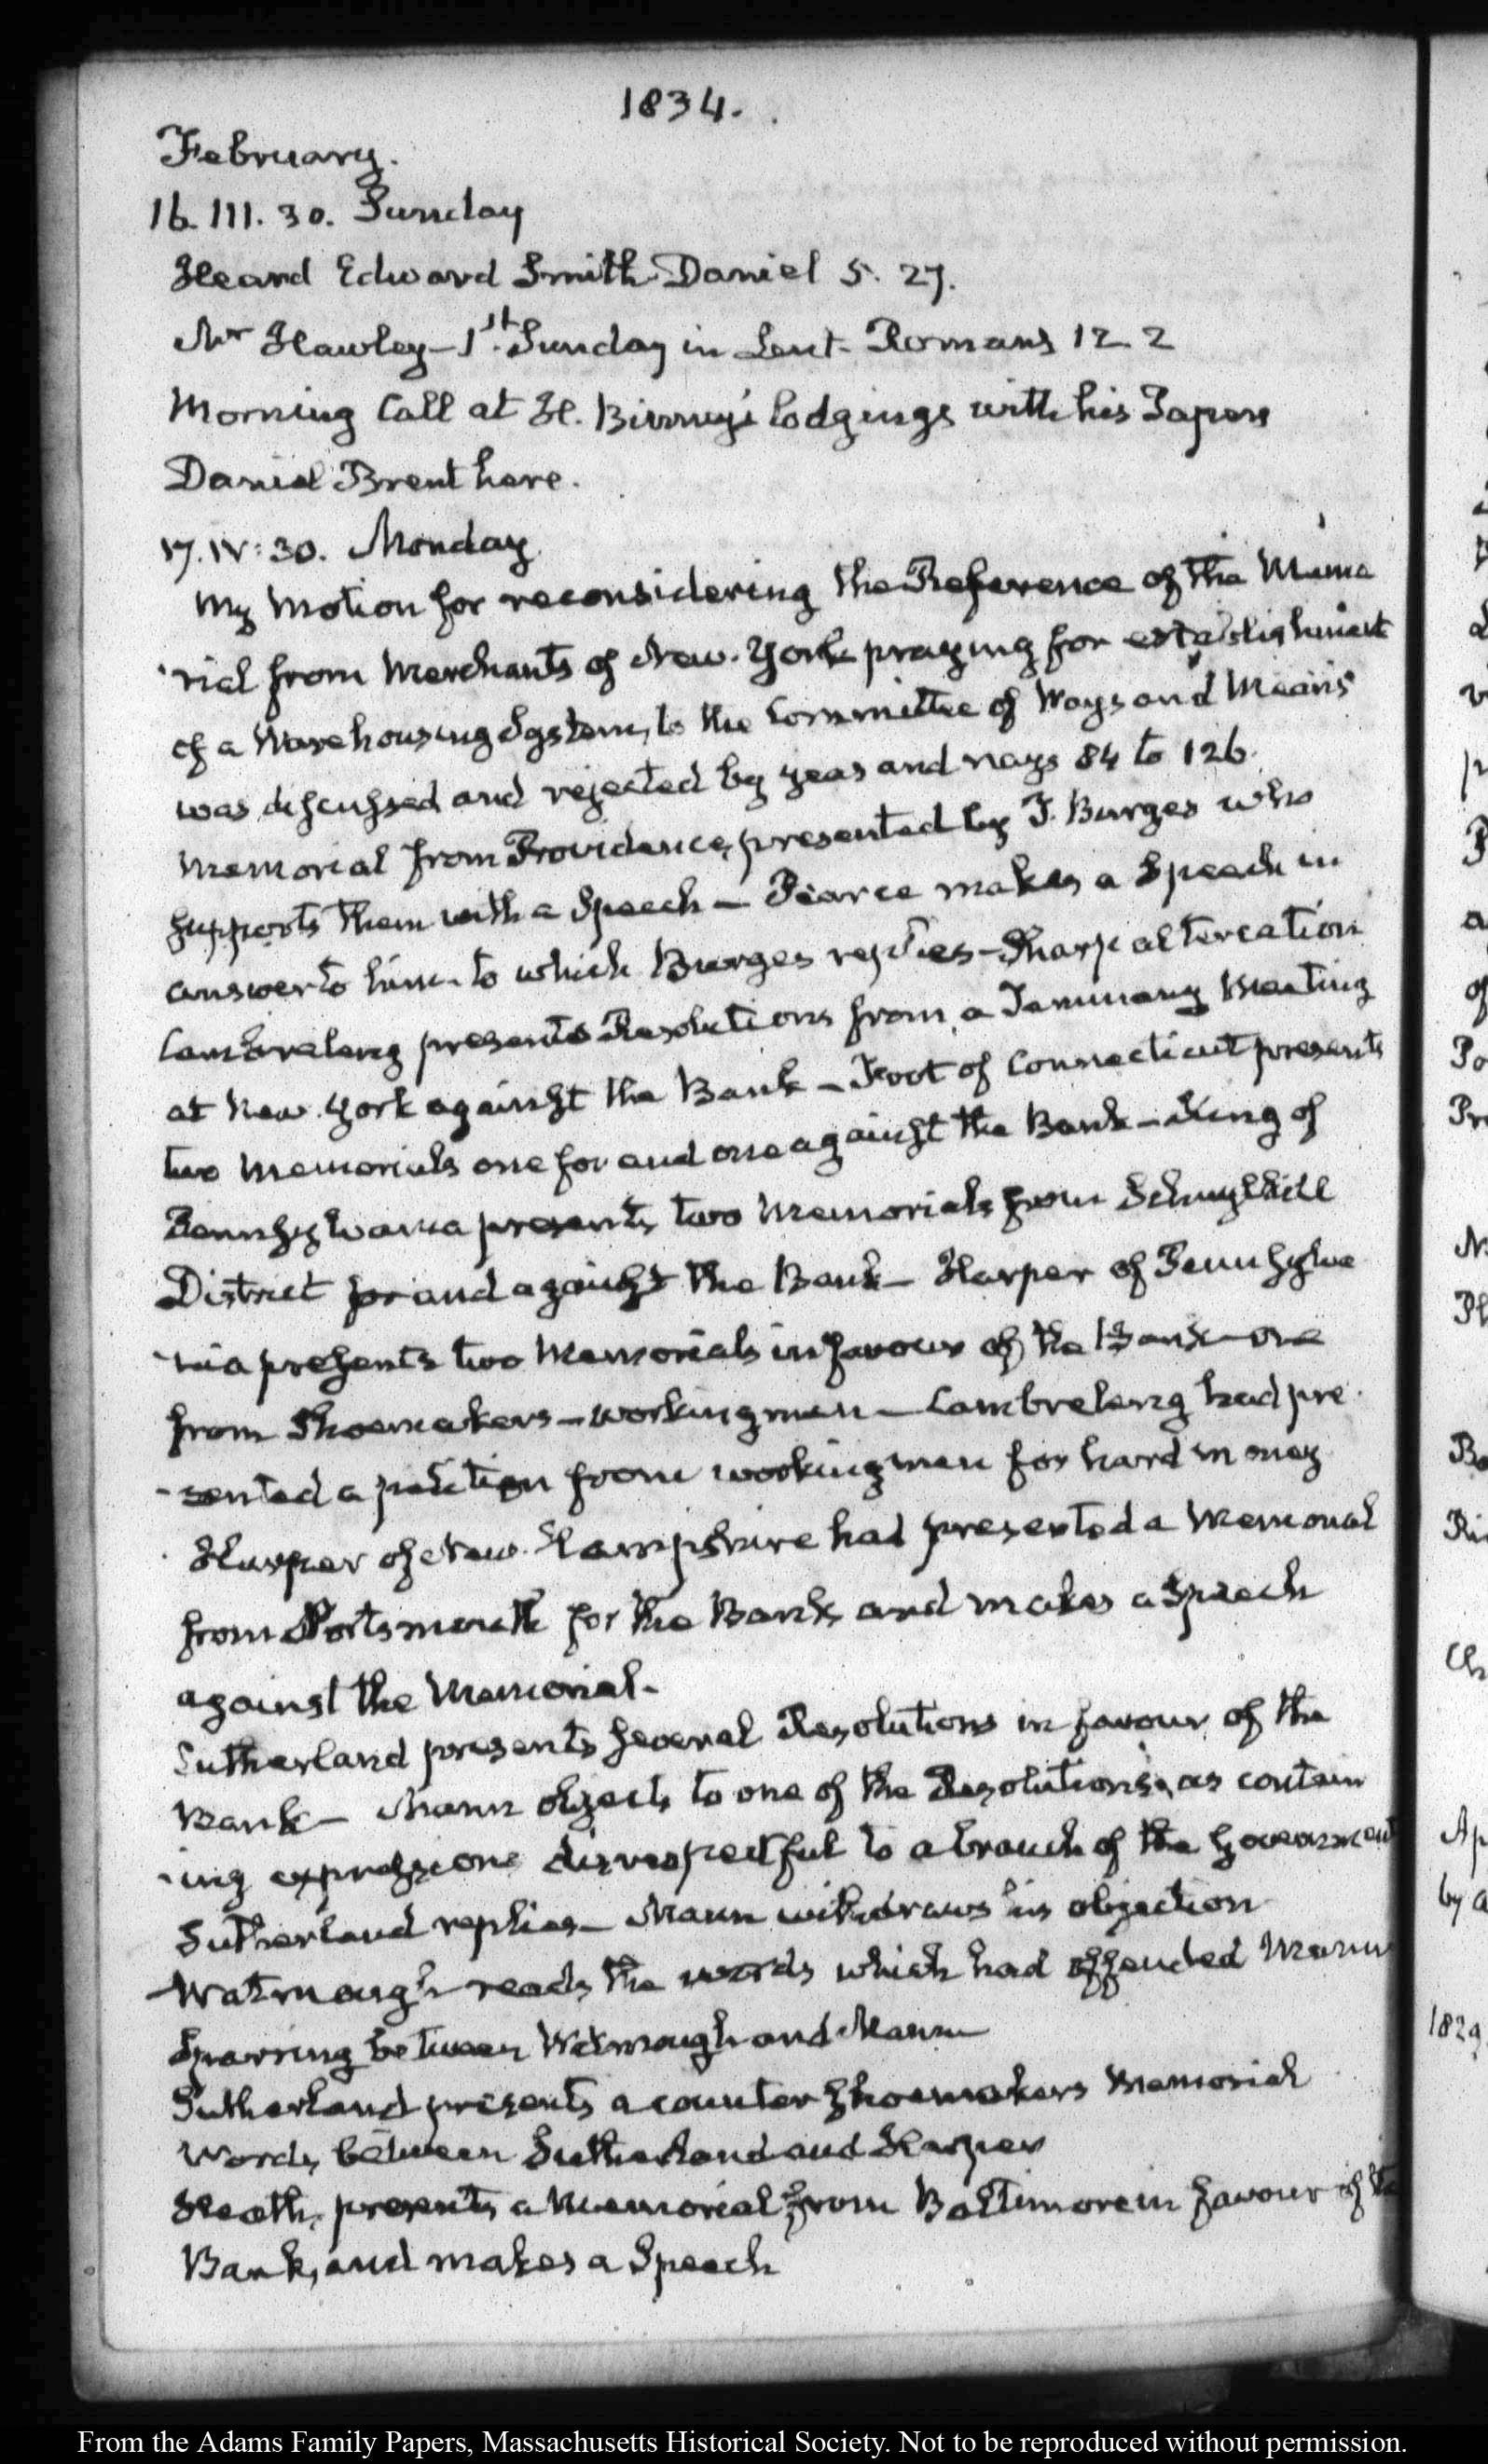 1834.
February.
16. III. 30. Sunday
Heard Edward Smith Daniel 5. 27.
Mr Hawley–1st. Sunday in Lent– Romans 12 2
Morning Call at H. Binney's lodgings with his Papers
Daniel Brent here.
17. IV: 30. Monday
My Motion for reconsidering the Reference of the Memo
-rial from Merchants of New-York praying for establishment
of a Warehousing System, to the Committee of Ways and Means
was discussed and rejected by yeas and nays 84 to 126.
Memorial from Providence, presented by T. Burges who
supports them with a Speech — Pearce makes a Speech in
answer to him– to which Burges replies–Sharp altercation
Cambreleng presents Resolutions from a Tammany Meeting
at New-York against the Bank — Foot of Connecticut presents
two Memorials one for and one against the Bank — King of
Pennsylvania presents two Memorials from Schuylkill
District for and against the Bank — Harper of Pennsylva
-nia presents two Memorials in favour of the Bank—one
from Shoemakers — workingmen — Cambreleng had pre
-sented a petition from workingmen for hard money
Harper of New-Hampshire had presented a Memorial
from Portsmouth for the Bank and makes a Speech
against the Memorial–
Sutherland presents several Resolutions in favour of the
Bank — Mann objects to one of the Resolutions, as contain
-ing expressions disrespectful to a branch of the Government
Sutherland replies — Mann withdraws his objection
Watmough reads the words which had offended Mann
Sparring between Watmough and Mann
Sutherland presents a counter Shoemakers Memorial
Words between Sutherland and Harper
Heath, presents a Memorial from Baltimore in favour of the
Bank, and makes a Speech
1829
by a
From the Adams Family Papers, Massachusetts Historical Society. Not to be reproduced without permission.